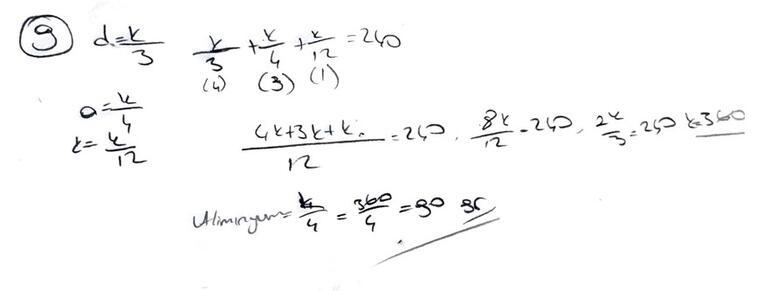 9 d=k/3 k/3 + k/4 + k/12 = 240
(4) (3) (1)
a=k/4
z=k/12 (4k+3k+k)/12 = 240, 8k/12 = 240, 2k/3 = 240 k=360
Aliminyum = k/4 = 360/4 = 90 gr